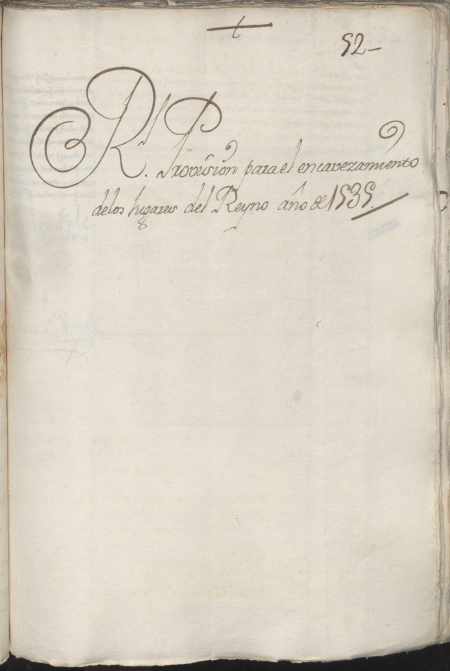 52-
Rl. Provision para el encavezamiento
de los lugares del Reyno año de 1535